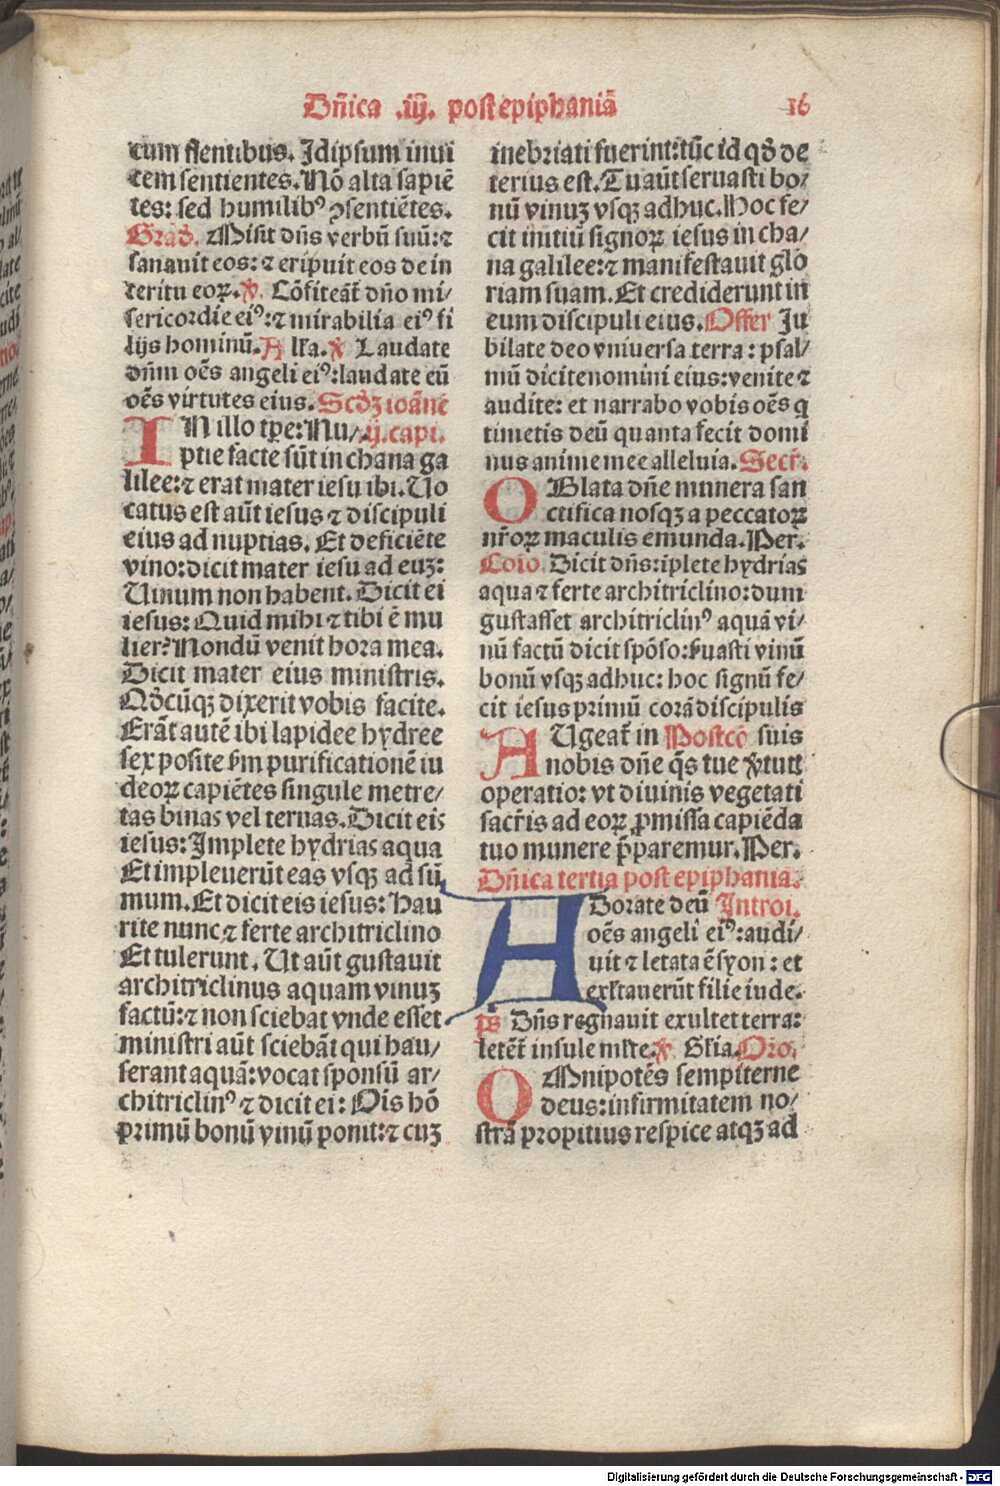 Dñica .iij. post epiphaniã
16
cum flentibus. Idipsum inui
cem sentientes. Nõ alta sapiẽ
tes: sed humilibꝰ ꝯsentiẽtes.
Grad̃. Misit dñs verbũ suũ: ⁊
sanauit eos: ⁊ eripuit eos de in
teritu eoꝝ. ℣. Cõfiteãt̃ dño mi⸗
sericordie eiꝰ: ⁊ mirabilia eiꝰ fi
lijs hominũ. Alľa. ℣ Laudate
dñm oẽs angeli eiꝰ: laudate eũ
oẽs virtutes eius. Scd̃ꝫ ioãnẽ
IN illo tꝑe: Nu⸗ .ij. capi.
ptie facte sũt in chana ga
lilee: ⁊ erat mater iesu ibi. Uo
catus est aũt iesus ⁊ discipuli
eius ad nuptias. Et deficiẽte
vino: dicit mater iesu ad euꝫ:
Uinum non habent. Dicit ei
iesus: Quid mihi ⁊ tibi ẽ mu
lier? Nondũ venit hora mea.
Dicit mater eius ministris.
Qd̃cũqꝫ dixerit vobis facite.
Erãt autẽ ibi lapidee hydree
sex posite ẜm purificationẽ iu
deoꝝ capiẽtes singule metre⸗
tas binas vel ternas. Dicit eis
iesus: Implete hydrias aqua
Et impleuerũt eas vsqꝫ ad sũ
mum. Et dicit eis iesus: Hau
rite nunc ⁊ ferte architriclino
Et tulerunt. Ut aũt gustauit
architriclinus aquam vinuꝫ
factũ: ⁊ non sciebat vnde esset
ministri aũt sciebãt qui hau⸗
serant aquã: vocat sponsũ ar⸗
chitriclinꝰ ⁊ dicit ei: Oĩs hõ
primũ bonũ vinũ ponit: ⁊ cuꝫ
inebriati fuerint: tũc id qd̃ de
terius est. Tu aũt seruasti bo⸗
nũ vinuꝫ vsqꝫ adhuc. Hoc fe⸗
cit initiũ signoꝝ iesus in cha⸗
na galilee: ⁊ manifestauit glo
riam suam. Et crediderunt in
eum discipuli eius. Offer Ju
bilate deo vniuersa terra: psal⸗
mũ dicite nomini eius: venite ⁊
audite: et narrabo vobis oẽs q
timetis deũ quanta fecit domi
nus anime mee alleluia. Secr̃.
OBlata dñe munera san
ctifica nosqꝫ a peccatoꝝ
nr̃oꝝ maculis emunda. Per.
Coio. Dicit dñs: iplete hydrias
aqua ⁊ ferte architriclino: dum
gustasset architriclinꝰ aquã vi⸗
nũ factũ dicit spõso: ẜuasti vinũ
bonũ vsqꝫ adhuc: hoc signũ fe⸗
cit iesus primũ corã discipulis
AUgeat̃ in Postcõ suis
nobis dñe q̃s tue ꝟtutꝭ
operatio: vt diuinis vegetati
sacr̃is ad eoꝝ ꝓmissa capiẽda
tuo munere p̃paremur. Per.
Dñica tertia post epiphania.
ADorate deũ Introi.
oẽs angeli eiꝰ: audi⸗
uit ⁊ letata ẽ syon: et
exľtauerũt filie iude.
ps̃ Dñs regnauit exultet terra:
letẽt̃ insule mľte. ℣. Gľia. Oro.
OMnipotẽs sempiterne
deus: infirmitatem no⸗
strã propitius respice atqꝫ ad
Digitalisierung gefördert durch die Deutsche Forschungsgemeinschaft - DFG